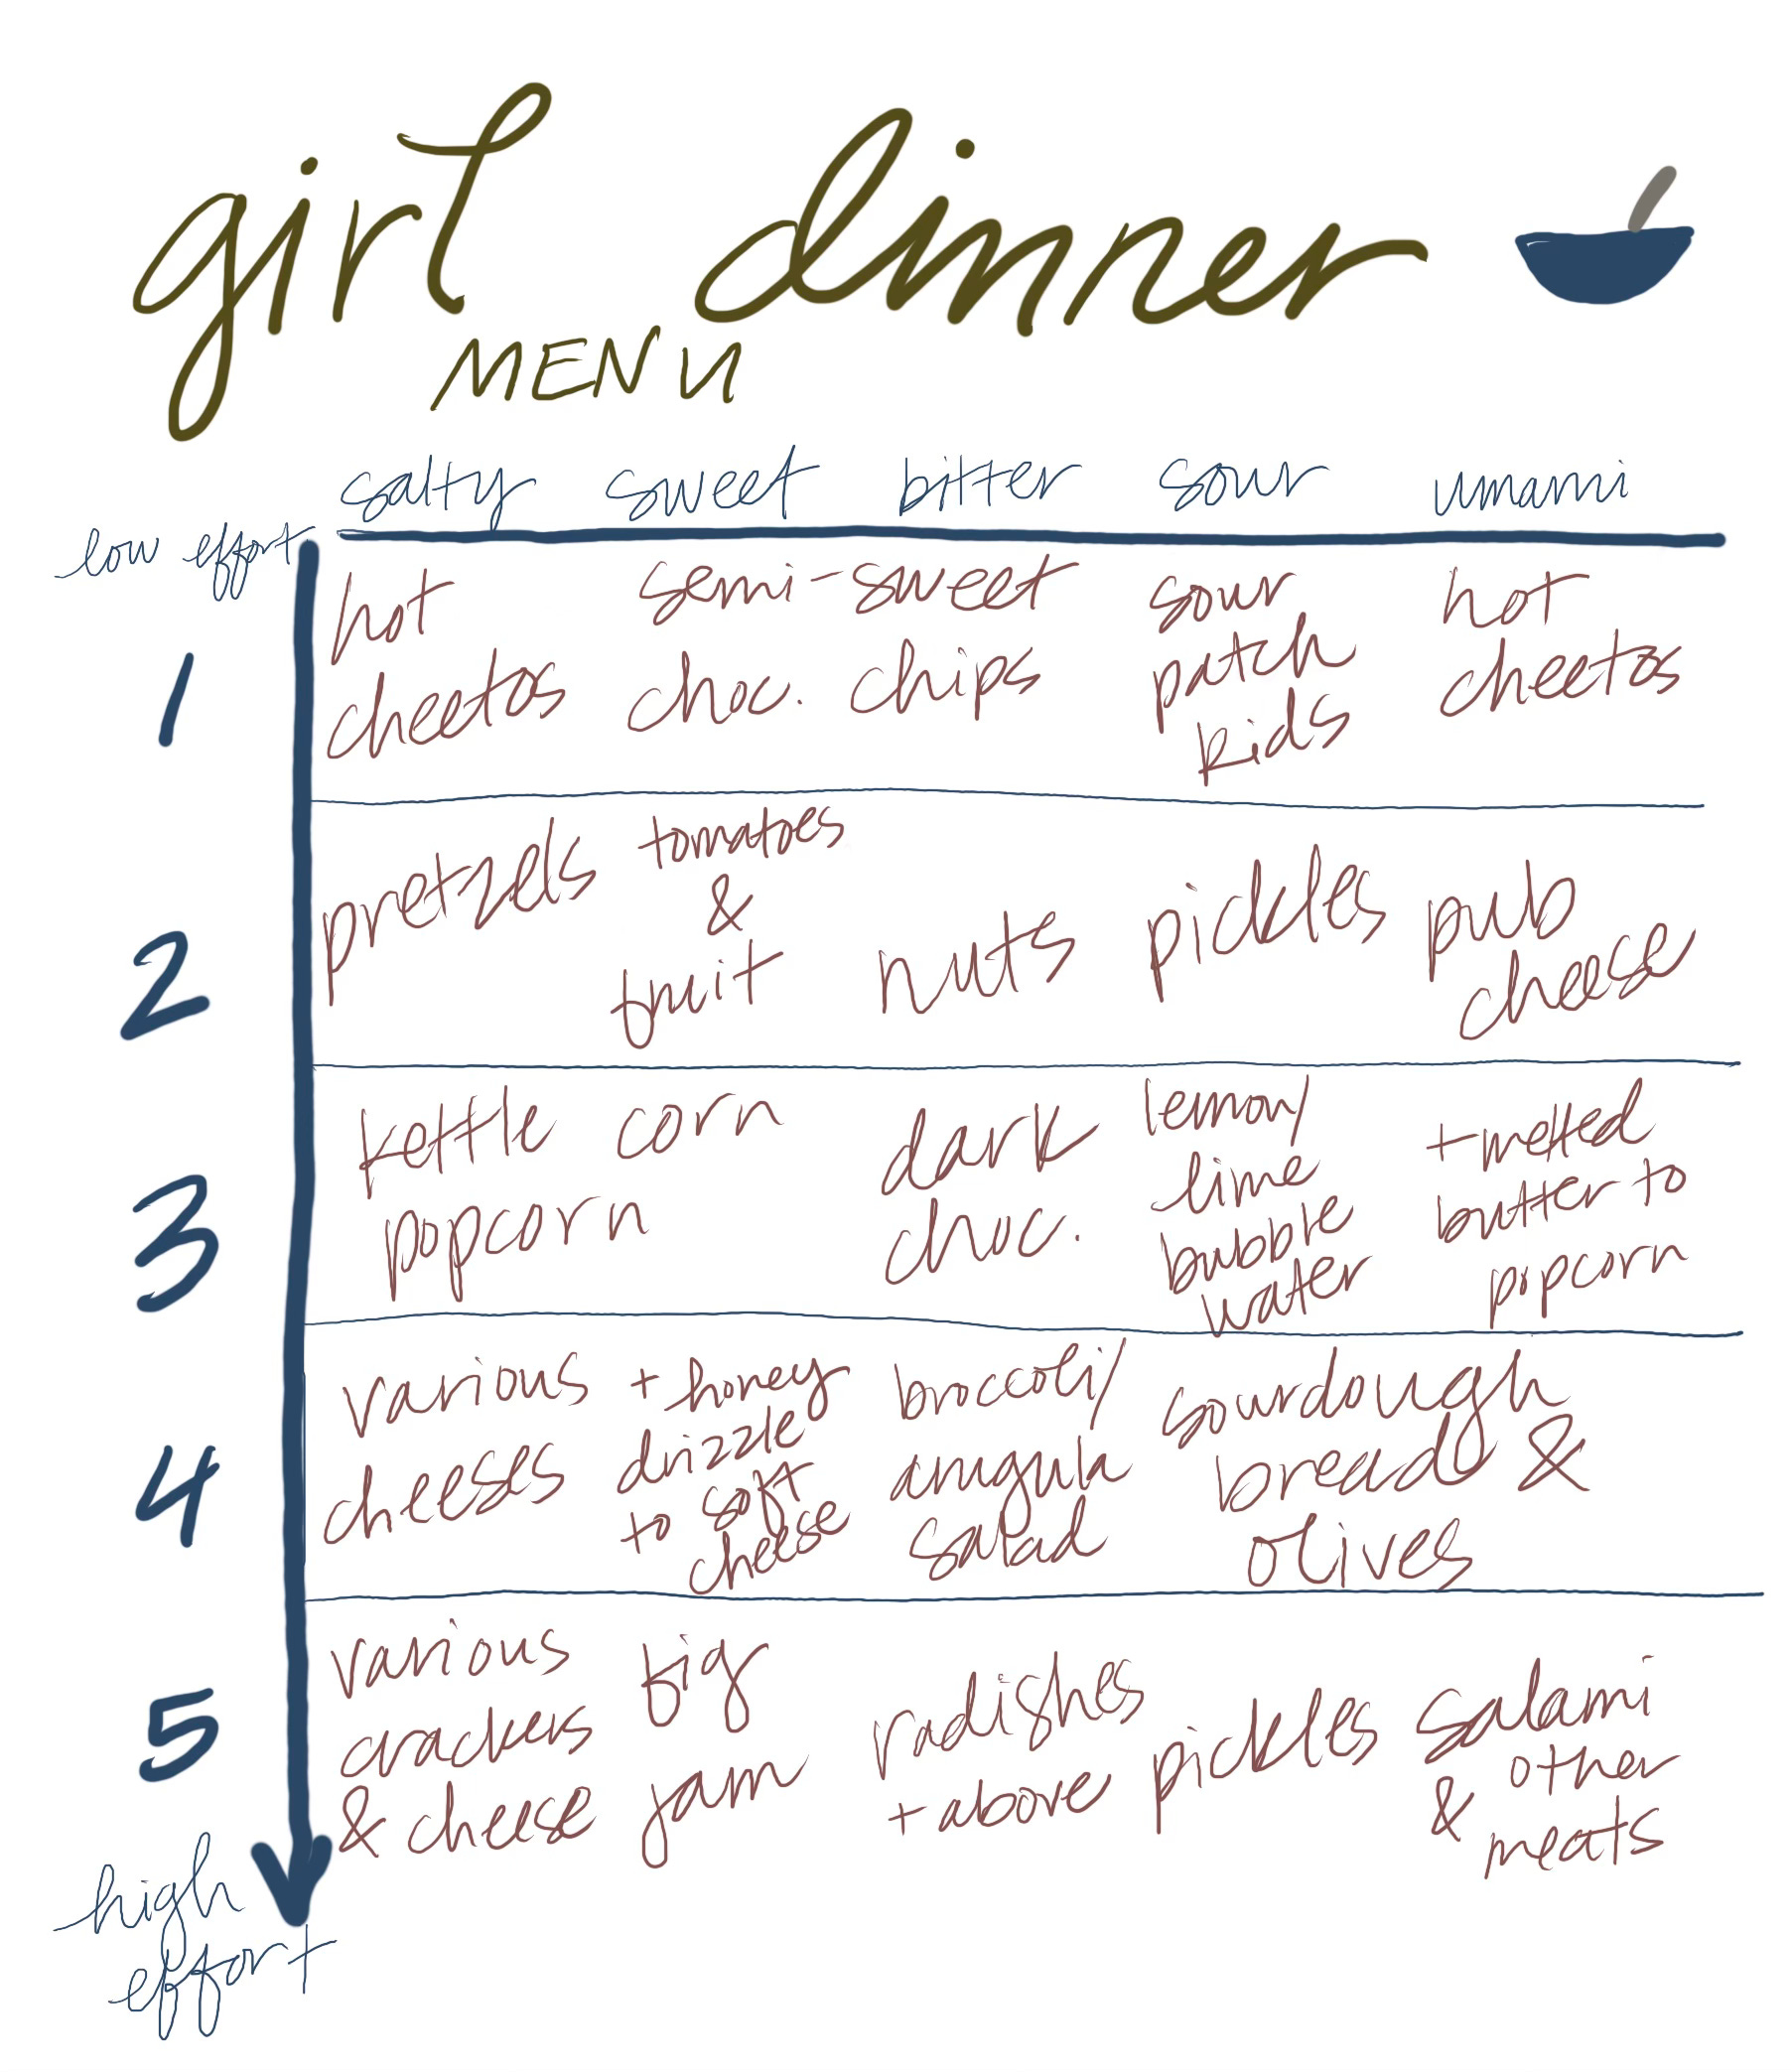 girl dinner
MENU
salty sweet bitter sour umami
low effort
1
hot
cheetos
semi-sweet
choc. chips
sour
patch
kids
hot
cheetos
2
pretzels
tomatoes
&
fruit
nuts
pickles
pub
cheese
3
kettle corn
popcorn
dark
choc.
lemon/
lime
bubble
water
+ melted
butter to
popcorn
4
various
cheeses
+ honey
drizzle
to soft
cheese
broccoli/
arugula
salad
sourdough
bread &
olives
5
various
crackers
& cheese
fig
jam
radishes
+ above
pickles
salami
& other
meats
high
effort